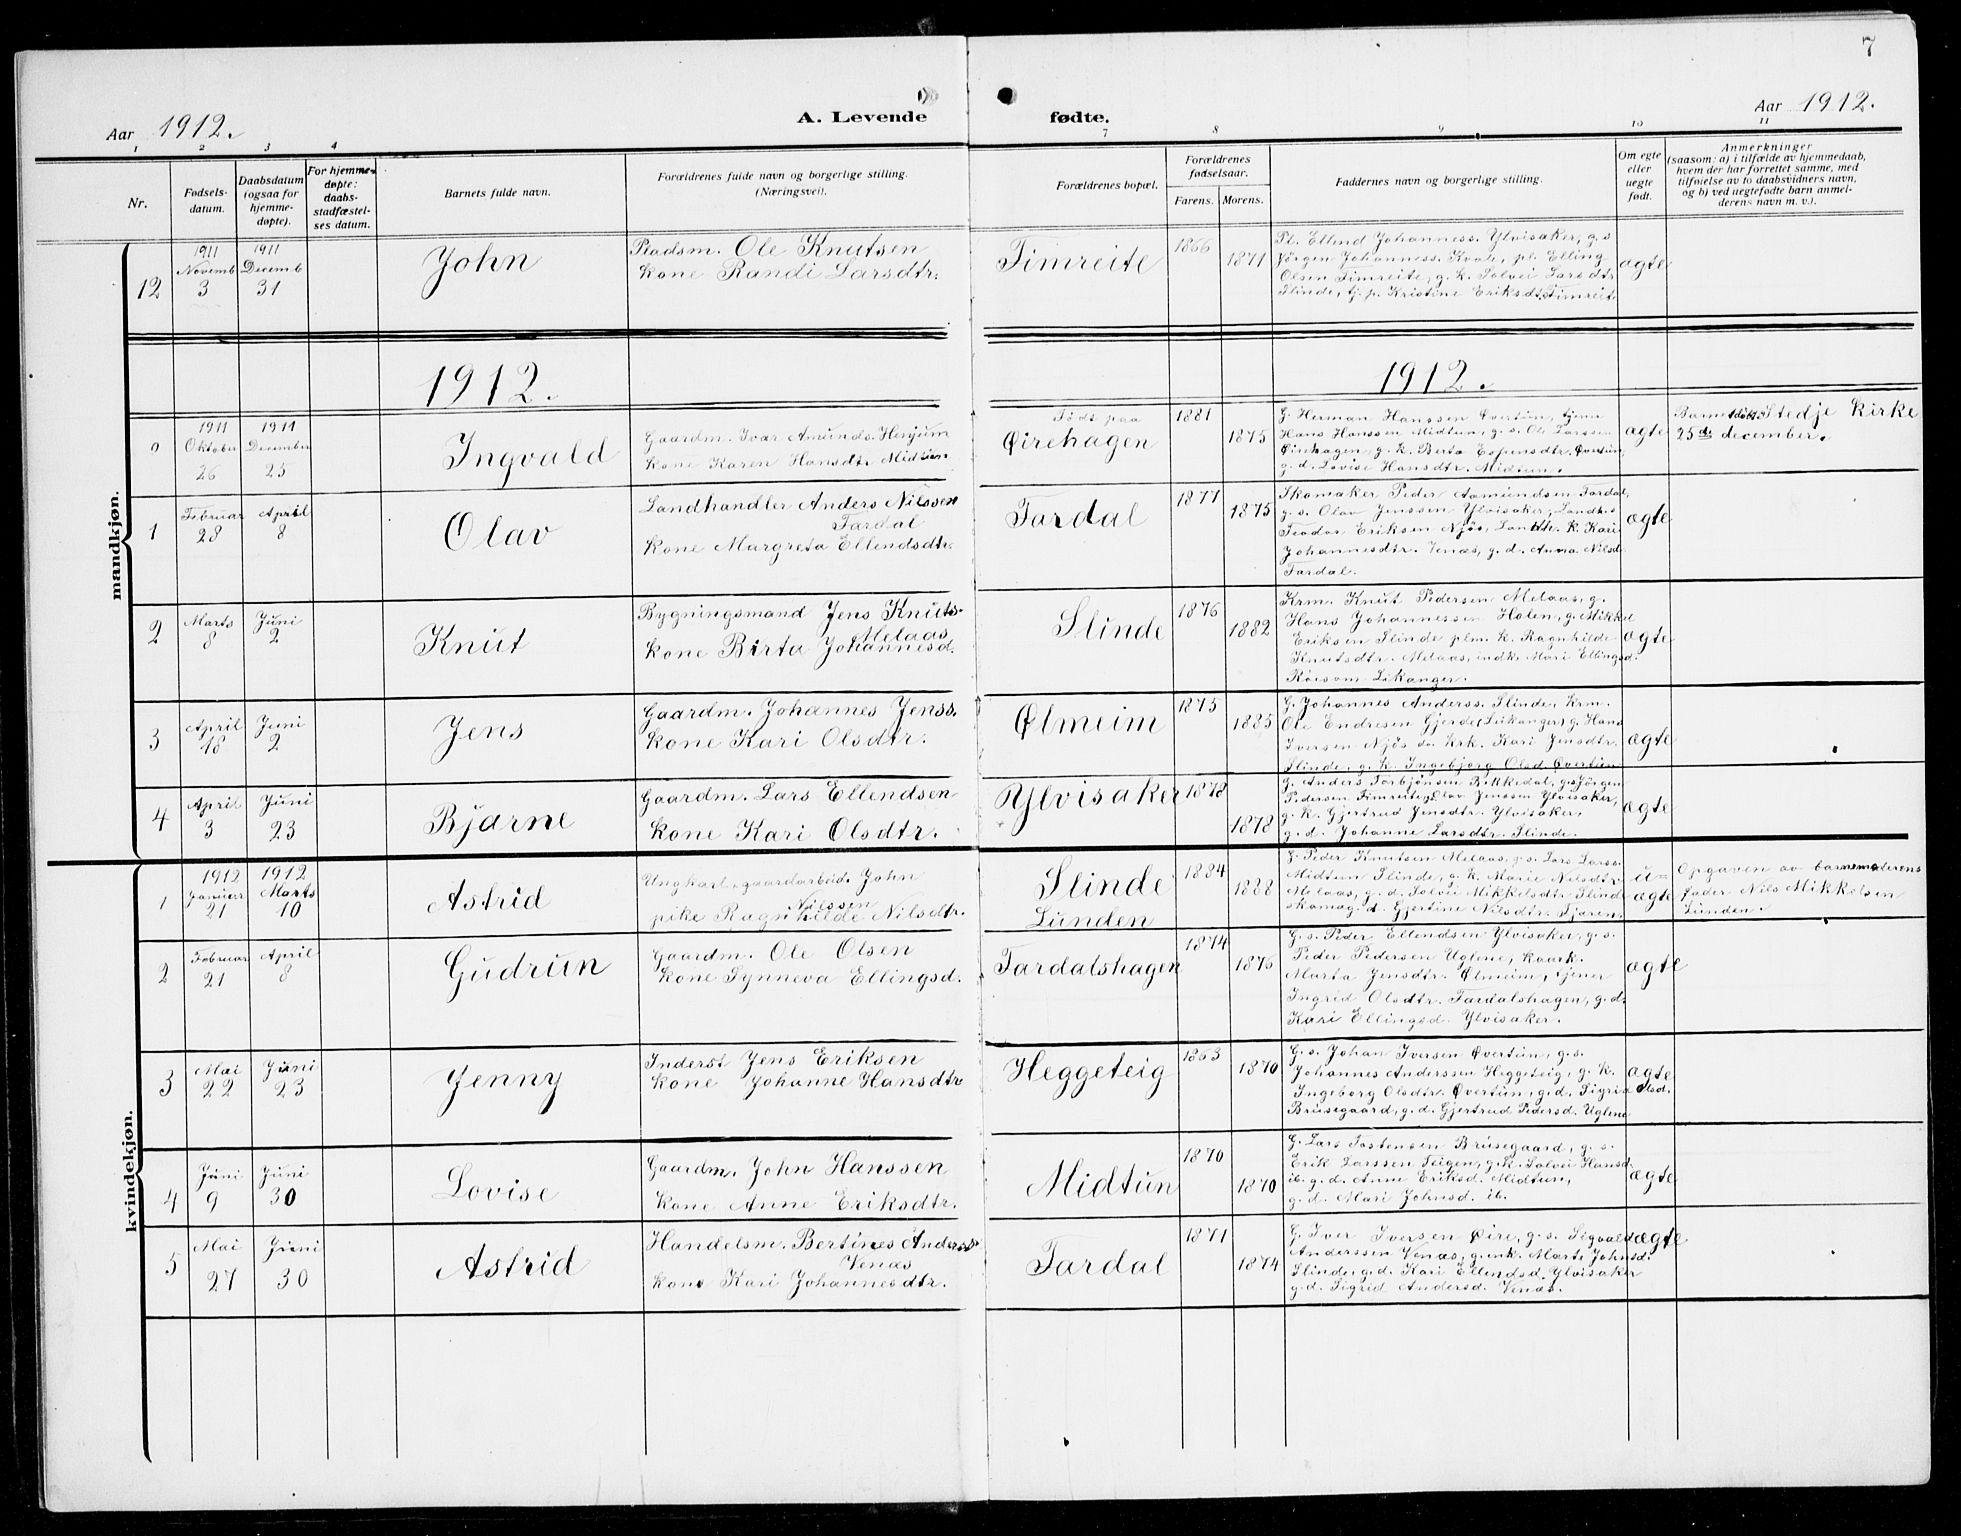 7
Aar 1912.
A. Levende
fødte.
Aar 1912.
1 2 3 4 7 8 9 10 11
Nr.
Fødsels-
datum.
Daabsdatum
(ogsaa for
hjemme-
døpte).
For hjemme-
døpte:
daabs-
stadfæstel-
ses datum.
Barnets fulde navn.
Forældrenes fulde navn og borgerlige stilling.
(Næringsvei).
Forældrenes bopæl.
Forældrenes
fødselsaar.
Farens. Morens.
Faddernes navn og borgerlige stilling.
Om egte
eller
uegte
født.
Anmerkninger
(saasom: a) i tilfælde av hjemmedaab,
hvem der har forrettet samme, med
tilføielse av to daabsvidners navn,
og b) ved uegtefødte barn anmel-
derens navn m. v.).
mandkjøn.
12
1911
Novemb
3
1911
Decemb
31
John
Pladsm. Ole Knutsen
kone Randi Larsdtr.
Timreite
1866
1871
Pl. Ellend Johanness. Ylvisaker, g. s
Jørgen Johanness. Kvale, pl. Elling
Olsen Timreite, g. k. Solvei Larsdtr
Slinde, tj. p. Kristine Eriksdt. Timreite
ægte
1912.
1912.
0
1911
Oktober
26
1911
December
25
Ingvald
Gaardm. Ivar Amunds. Henjum
kone Karen Hansdtr Midtun
Født paa
Øirehagen
1881
1875
G. Herman Hanssen Øvertun, tjener
Hans Hanssen Midtun, g. s. Ole Larssen
Øirehagen, g. k. Berta Espensdtr. Øvertun,
g. d. Lovise Hansdtr. Midtun.
ægte
Barnet døbt i Stedje kirke
25de december.
1
Februar
28
April
8
Olav
Landhandler Anders Nilssen
Tardal
kone Margreta Ellendsdtr.
Tardal
1877
1875
Skomaker Peder Aamundsen Tardal,
g. s. Olav Jenssen Ylvisaker, Landh. s
Teodor Eriksen Njøs, Landh. k. Kari
Johannesdtr. Venæs, g. d. Anna Nilsd.
Tardal.
ægte
2
Marts
8
Juni
2
Knut
Bygningsmand Jens Knuts-
Melaas
kone Birta Johannesd.
Slinde
1876
1882
Krm. Knut Pedersen Melaas, g.
Hans Johannessen Holen, g. Mikkel
Eriksen Slinde plm. k. Ragnhilde
Knutsdtr. Melaas, indk. Mari Ellingsd.
Likanger.
ægte
3
April
18
Juni
2
Jens
Gaardm. Johannes Jenss.
kone Kari Olsdtr.
Ølmeim
1875
1885
G. Johannes Anderss. Slinde, krm.
Ole Endresen Gjerde (Leikanger) g. Hans
Iversen Njøs do krk. Kari Jensdtr.
Slinde, g. k. Ingebjørg Olsd Øvertun
ægte
4
April
3
Juni
23
Bjarne
Gaardm. Lars Ellendsen
kone Kari Olsdtr.
Ylvisaker
1878
1878
G. Anders Torbjønsen Bitkedal, g. s Jørgen
Pedersen Timreite, g. s Olav Jenssen Ylvisaker,
g. k. Gjertrud Jensdtr. Ylvisaker,
g. d. Johanne Larsdtr. Slinde.
ægte
kvindekjøn.
1
1912
Januar
21
1912
Marts
10
Astrid
Ungkarl, gaardarbeid. John
Nilssen
pike Ragnhilde Nilsdtr.
Slinde
Lunden
1884
1888
G. Peder Knutsen Melaas, g. s. Lars Larss.
Midtun Slinde, g. k. Marie Nilsdtr
Melaas, g. d. Solvei Mikkelsdtr Slinde
skomag. d. Gjertine Nilsdtr.
u-
ægte
Opgaven av barnemoderens
fader Nils Mikkelsen
Lunden.
2
Februar
21
April
8
Gudrun
Gaardm. Ole Olsen
kone Synneva Ellingsd.
Tardalshagen
1874
1876
G. s. Peder Ellendsen Ylvisaker, g. s.
Peder Pedersen Uglene, kaark.
Marta Jensdtr. Ølmeim, tjener
Ingrid Olsdtr. Tardalshagen, g. d.
Kari Ellingsd. Ylvisaker.
ægte
3
Mai
22
Juni
23
Jenny
Inderst Jens Eriksen
kone Johanne Hansdtr
Heggeteig
1863
1870
G. s. Johan Iversen Øvertun, g. s.
Johannes Anderssen Heggeteig, g. k.
Ingeborg Olsdtr. Øvertun, g. d. Sigrid Olsd.
Brusegaard, g. d. Gjertrud Pedersd. Uglene
ægte
4
Juni
9
Juni
30
Lovise
Gaardm. John Hanssen
kone Anne Eriksdtr.
Midtun
1870
1870
G. Lars Tostensen Brusegaard, g. s.
Erik Larssen Teigen, g. k. Solvei Hansd.
ib. g. d. Anne Eriksd. Midtun,
g. d. Mari Johnsd. ib.
ægte
5
Mai
27
Juni
30
Astrid
Handelsm. Bertines Anderss
Venæs
kone Kari Johannesdtr.
Tardal
1871
1874
G. Iver Iversen Øire, g. s. Sigvald
Anderssen Venæs, g. enk. Marte Johnsd.
Slinde, g. d. Kari Ellendsd. Ylvisaker
g. d. Sigrid Andersd. Venæs.
ægte